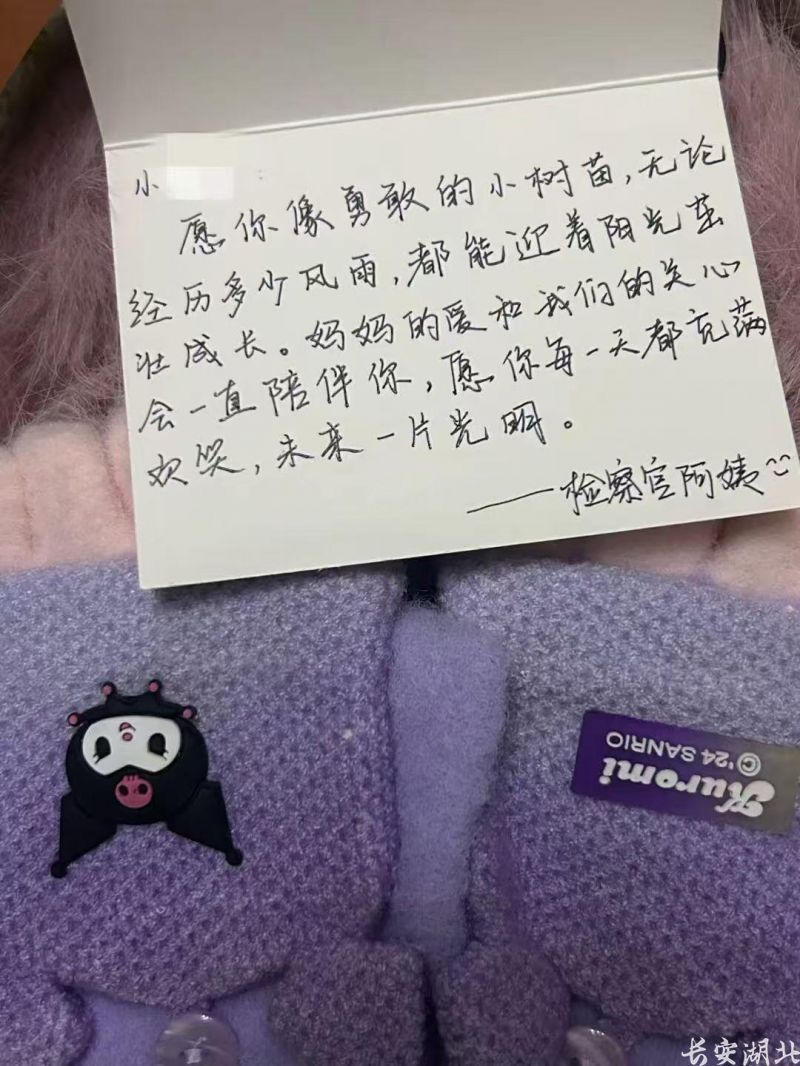 小 :
愿你像勇敢的小树苗，无论
经历多少风雨，都能迎着阳光茁
壮成长。妈妈的爱和我们的关心
会一直陪伴你，愿你每一天都充满
欢笑，未来一片光明。
——检察官阿姨
Kuromi
©'24 SANRIO
长安湖北